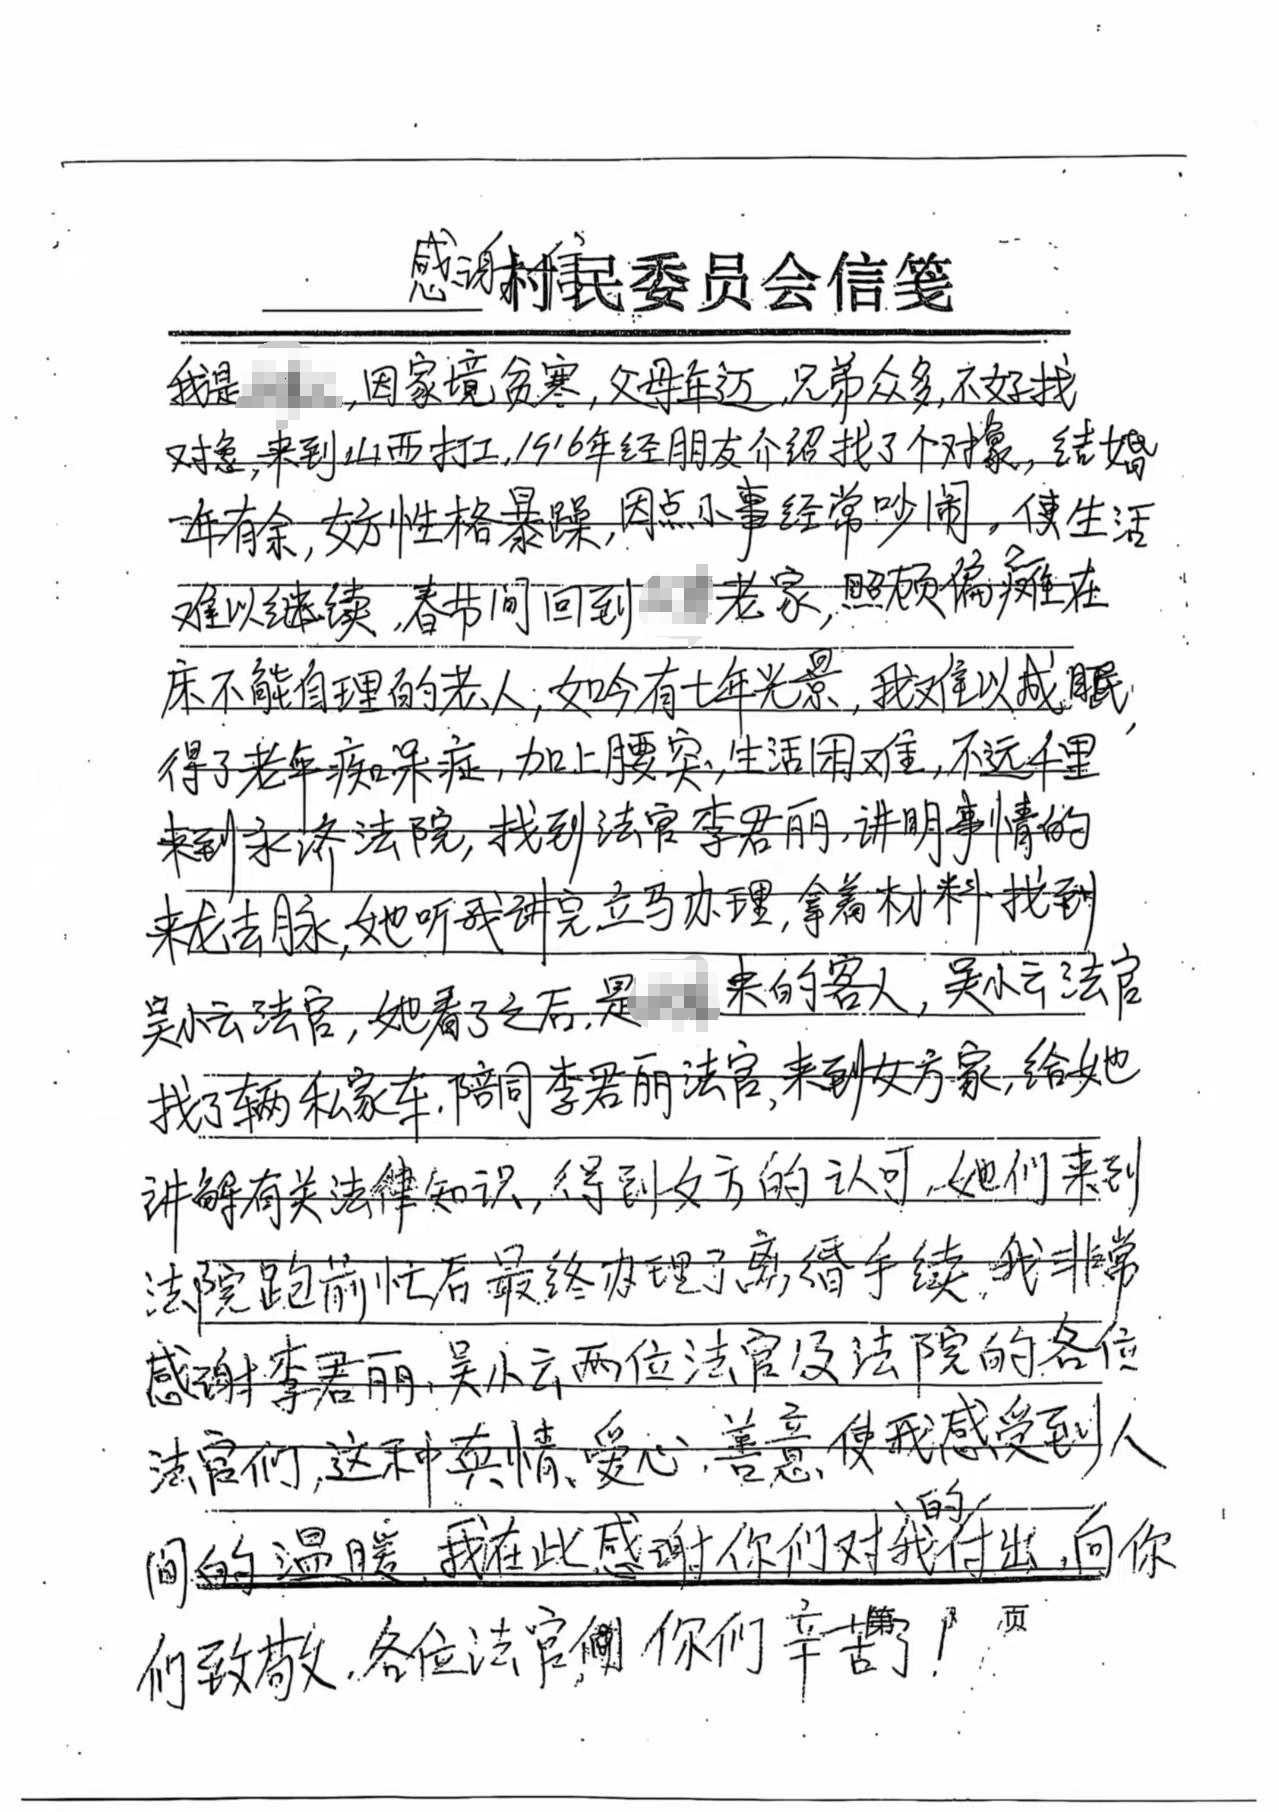 感谢信
村民委员会信笺
我是,因家境贫寒,父母年迈,兄弟众多,不好找
对象,来到山西打工,1916年经朋友介绍找了个对象,结婚
一年有余,女方性格暴躁,因点小事经常吵闹,使生活
难以继续,春节间回到老家,照顾偏瘫在
床不能自理的老人,如今有七年光景,我难以成眠,
得了老年痴呆症,加上腰突,生活困难,不远千里
来到永济法院,找到法官李君丽,讲明事情的
来龙去脉,她听我讲完立马办理,拿着材料找到
吴小云法官,她看了之后,是来的客人,吴小云法官
找了辆私家车,陪同李君丽法官,来到女方家,给她
讲解有关法律知识,得到女方的认可,她们来到
法院跑前忙后最终办理了离婚手续,我非常
感谢李君丽、吴小云两位法官及法院的各位
法官们,这种真情、爱心、善意、使我感受到人
间的温暖,我在此感谢你们对我的付出,向你
们致敬,各位法官们你们辛苦了!
第 页